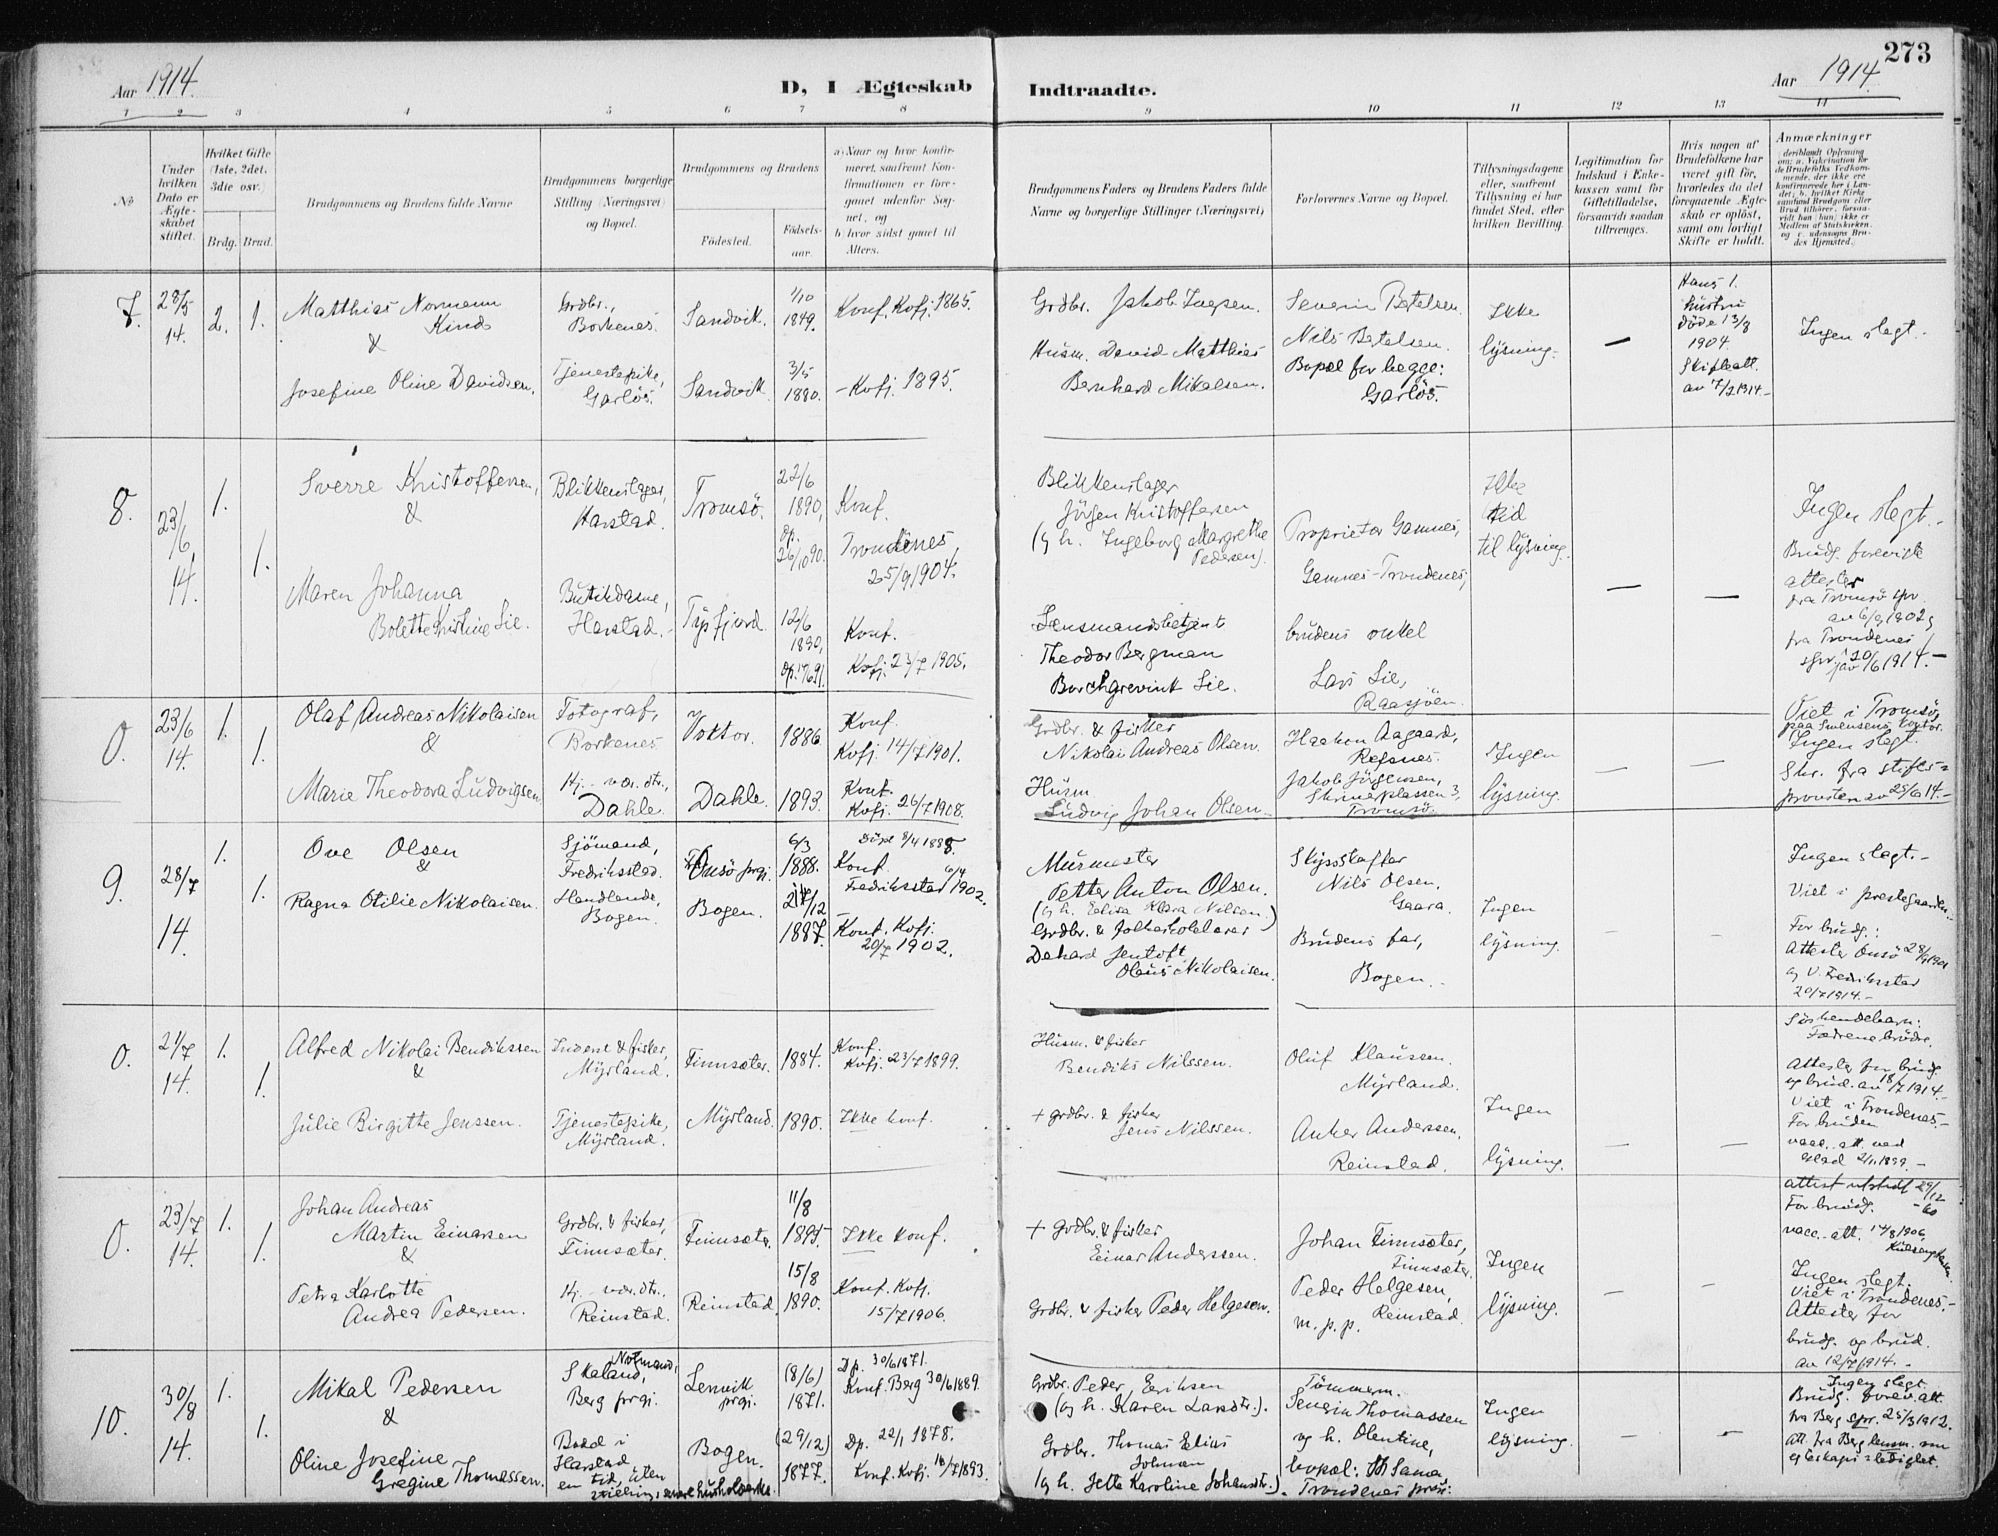 273
Aar 1914.
D, I Ægteskab Indtraadte.
Aar 1914.
1 2 3 4 5 6 7 8 9 10 11 12 13 14
No
Under hvilken Dato er Ægteskabet stiftet.
Hvilket Gifte (1ste, 2det, 3die osv.)
Brdg. Brud.
Brudgommens og Brudens fulde Navne
Brudgommens borgerlige Stilling (Næringsvei) og Bopæl.
Brudgommens og Brudens
Fødested.
Fødselsaar.
a) Naar og hvor konfirmeret, saafremt Konfirmationen er foregaaet udenfor Sognet, og
b) hvor sidst gaaet til Alters.
Brudgommens Faders og Brudens Faders fulde Navne og borgerlige Stillinger (Næringsvei)
Forlovernes Navne og Bopæl.
Tillysningsdagene eller, saafremt Tillysning ei har fundet Sted, efter hvilken Bevilling.
Legitimation for Indskud i Enkekassen samt for Giftetilladelse, forsaavidt saadan tiltrænges.
Hvis nogen af Brudefolkene har været gift før, hvorledes da det foregaaende Ægteskab er opløst, samt om lovligt Skifte er holdt.
Anmærkninger
(deriblandt Oplysning om: a. Vakcination for de Brudefolks Vedkommende, der ikke ere konfirmerede her i Landet; b. hvilket Kirkesamfund Brudgom eller Brud tilhører, forsaavidt han (hun) ikke er Medlem af Statskirken, og c. udensogns Brudes Hjemsted.)
7. 28/5 14. 2. 1.
Matthias Normann Kind
&
Josefine Oline Davidsen.
Grdbr., Borkenes.
Tjenestepike, Garlös.
Sandvik. 1/10 1849. Konf. Kofj. 1865.
Sandvik. 3/5 1880. - Kofj. 1895.
Grdbr. Jakob Ingesen.
Husm. David Matthias
Bernhard Mikalsen.
Severin Bertelsen.
Nils Bertelsen.
Bopæl for begge:
Garlös.
Ikke lysning.
—
Hans 1. hustru döde 13/8 1904. Skifteatt. av 7/2 1914.-
Ingen slegt.
8. 23/6 14. 1. 1.
Sverre Kristoffersen,
&
Maren Johanna
Bolette Kristine Lie.
Blikkenslager, Harstad.
Butikdame, Harstad.
Tromsö. 22/6 1890, Dp. 26/10 90.
Konf. Trondenes 25/9 1904.
Tysfjord. 12/6 1890,
Konf. Kofj. 23/7 1905.
Blikkenslager
Jörgen Kristoffersen
(g h. Ingeborg Margrethe Pedersen).
Lensmandsbetjent
Theodor Bergman
Borchgrevink Lie.
Proprietær Gamnes,
Gamnes-Trondenes,
brudens onkel
Lars Lie,
Raasjöen.
Ikke tid til lysning.
— —
Ingen slegt.-
Brudg. foreviste attester
fra Tromsö spr.
av 6/9 1902 og
fra Trondenes
spr. av 20/6 1914.-
0. 23/6 14. 1. 1.
Olaf Andreas Nikolaisen
&
Marie Theodora Ludvigsen
Fotograf, Borkenes
Hj. vær. dtr., Dahle.
Voktor. 1886.
Konf. Kofj. 14/7 1901.
Dahle. 1893.
Konf. Kofj. 26/7 1908.
Grdbr. & fisker
Nikolai Andreas Olsen.
Husm.
Ludvig Johan Olsen.
Haakon Aagaard,
Refsnes.
Jakob Jörgensen,
Tromsö.
Ingen lysning.
— —
Viet i Tromsö, paa Svensens kontor.
Ingen slegt.
Skr. fra stiftsprovsten av 25/6 14.-
9. 28/7 14. 1. 1.
Ove Olsen
&
Ragna Otilie Nikolaisen.
Sjömand, Fredriksstad.
Handlende, Bogen.
Onsö prgj. 6/3 1888.
Döpt 8/4 1888.
Konf. Fredriksstad 6/4 1902.
Bogen. 24/12 1887.
Konf. Kofj. 20/7 1902.
Murmester
Petter Anton Olsen.
(g h. Elisa Klara Nilsen.)
Grdbr. &
Dehard Jentoft
Olaus Nikolaisen.
Skysskaffer
Nils Olsen,
Gaara.
Brudens far,
Bogen.
Ingen lysning.
— —
Ingen slegt.-
Viet i prestegaarden.-
For brudg.:
Attester Onsö 28/9 1901
og V. Fredriksstad
20/7 1914.-
0. 21/7 14. 1. 1.
Alfred Nikolai Bendikssen
&
Julie Birgitte Jenssen.
Inderst & fisker, Myrland.
Tjenestepike, Myrland.
Finnsæter. 1884.
Konf. Kofj. 23/7 1899.
Myrland. 1890. Ikke konf.
Husm. & fisker
Bendiks Nilssen.
+ grdbr. & fisker
Jens Nilssen.
Oluf Klaussen.
Myrland.
Anker Anderssen,
Reinstad.
Ingen lysning.
— —
Söskendebarn:
Fædrene brödre.
Attester for brudg.
og brud av 18/7 1914.-
Viet i Trondenes.-
For bruden
vacc. att. ved
2/11 1899.-
0. 23/7 14. 1. 1.
Johan Andreas
Martin Einarsen
&
Petra Karlotte
Andrea Pedersen.
Grdbr. & fisker, Finnsæter.
Hj. vær. dtr. Reinstad.
Finnsæter. 11/8 1895. Ikke konf.
Reinstad. 15/8 1890.
Konf. Kofj. 15/7 1906.
+ grdbr. & fisker
Einar Anderssen.
Grdbr. & fisker Peder Helgesen.
Johan Finnsæter,
Finnsæter.
Peder Helgesen,
Reinstad.
m. p. p.
Ingen lysning.
— —
attest utstedt 29/12
For brudg.
vacc.-att. 14/8 1906,
Ingen slegt.
Viet i Trondenes.-
Attester for
brudg. og brud.
av 12/7 1914.-
10. 30/8 14. 1. 1.
Mikal Pedersen
&
Oline Josefine
Gregine Thomassen.
Notmand, Skaland, Berg prgj.
Boed i Harstad en tid, uten stilling,
Lenvik prgj. (8/6) 1871.
Dp. 30/6 1871.
Konf. Berg 30/6 1889.
Bogen. (29/12) 1877.
Dp. 22/1 1878.
Konf. Kofj. 16/7 1893.
Grdbr. Peder Eriksen
(og h. Karen Larsdtr.).
Grdbr. Thomas Elias
Johnsen
(g h. Jetta Karoline Johansdtr.).
Tömmerm.
Senerin Thomassen
og h. Olentine,
bopæl: Sama,
Trondenes
Ingen lysning.
— —
Ingen slegt.
Brudg. forev. att.
fra Berg spr. 25/3 1912.
Att. fra Berg lensm. om
egteskaps-ledighet.